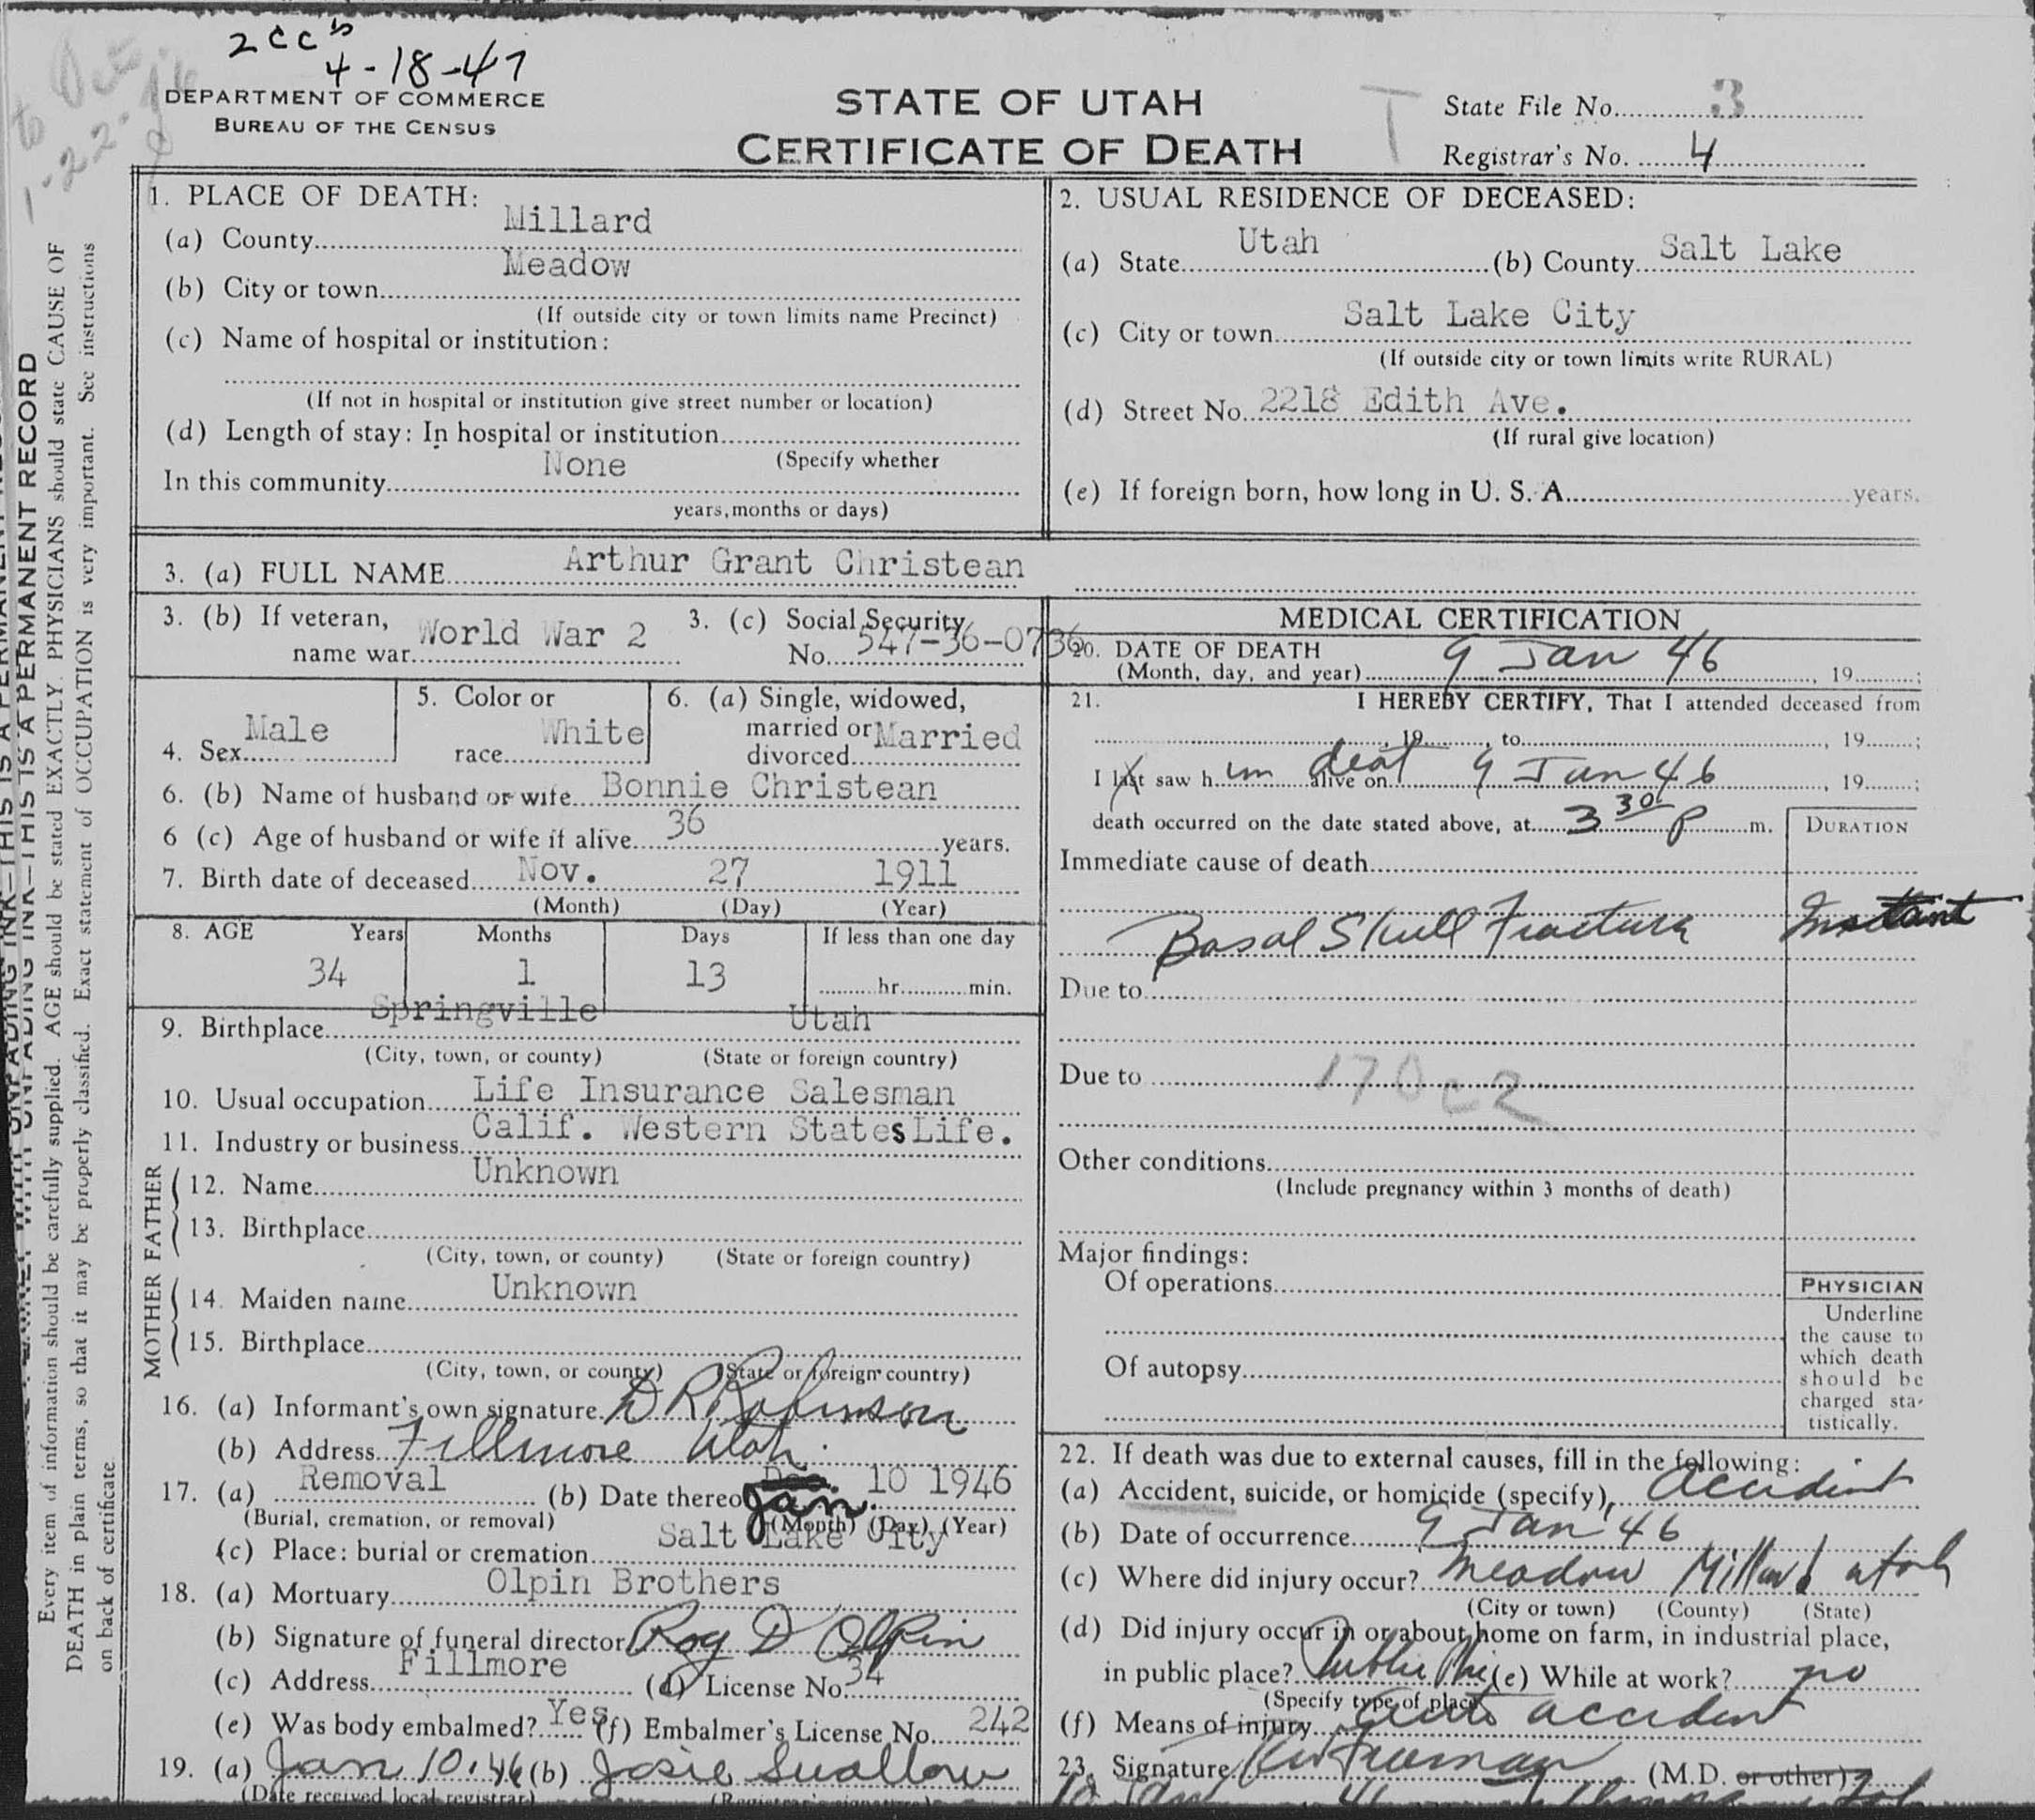 2 cc
4-18-47
DEPARTMENT OF COMMERCE
BUREAU OF THE CENSUS
STATE OF UTAH
CERTIFICATE OF DEATH
State File No. 3
Registrar's No. 4
1. PLACE OF DEATH:
(a) County Millard
(b) City or town Meadow
(If outside city or town limits name Precinct)
(c) Name of hospital or institution:
(If not in hospital or institution give street number or location)
(d) Length of stay: In hospital or institution
(Specify whether
In this community None
years, months or days)
2. USUAL RESIDENCE OF DECEASED:
(a) State Utah (b) County Salt Lake
(c) City or town Salt Lake City
(If outside city or town limits write RURAL)
(d) Street No. 2218 Edith Ave.
(If rural give location)
(e) If foreign born, how long in U. S. A. years.
3. (a) FULL NAME Arthur Grant Christean
3. (b) If veteran, name war World War 2
3. (c) Social Security No. 547-36-0736
4. Sex Male
5. Color or race White
6. (a) Single, widowed, married or divorced Married
6. (b) Name of husband or wife Bonnie Christean
6 (c) Age of husband or wife if alive 36 years.
7. Birth date of deceased Nov. 27 1911
(Month) (Day) (Year)
8. AGE Years Months Days If less than one day
34 1 13 hr. min.
9. Birthplace Springville Utah
(City, town, or county) (State or foreign country)
10. Usual occupation Life Insurance Salesman
11. Industry or business Calif. Western States Life.
FATHER
12. Name Unknown
13. Birthplace
(City, town, or county) (State or foreign country)
MOTHER
14. Maiden name Unknown
15. Birthplace
(City, town, or county) (State or foreign country)
16. (a) Informant's own signature D R Robinson
(b) Address Fillmore Utah.
17. (a) Removal (b) Date thereof Jan. 10 1946
(Burial, cremation, or removal) (Month) (Day) (Year)
(c) Place: burial or cremation Salt Lake City
18. (a) Mortuary Olpin Brothers
(b) Signature of funeral director Roy D Olpin
(c) Address Fillmore (d) License No. 34
(e) Was body embalmed? Yes (f) Embalmer's License No. 242
19. (a) Jan 10. 46 (b) Josie Swallow
(Date received local registrar) (Registrar's signature)
MEDICAL CERTIFICATION
20. DATE OF DEATH
(Month, day, and year) 9 Jan 46, 19 ;
21. I HEREBY CERTIFY, That I attended deceased from
, 19 , to , 19 ;
I last saw him alive on 9 Jan 46, 19 ;
death occurred on the date stated above, at 3 30 p m.
DURATION
Immediate cause of death
Basal Skull Fracture Instant
Due to
Due to 170c2
Other conditions
(Include pregnancy within 3 months of death)
Major findings:
Of operations
Of autopsy
PHYSICIAN
Underline
the cause to
which death
should be
charged sta-
tistically.
22. If death was due to external causes, fill in the following:
(a) Accident, suicide, or homicide (specify) Accident
(b) Date of occurrence 9 Jan 46
(c) Where did injury occur? Meadow Millard Utah
(City or town) (County) (State)
(d) Did injury occur in or about home on farm, in industrial place,
in public place? Public (e) While at work? no
(Specify type of place)
(f) Means of injury Auto accident
23. Signature (M.D. or other)
THIS IS A PERMANENT RECORD
Every item of information should be carefully supplied. AGE should be stated EXACTLY. PHYSICIANS should state CAUSE OF
DEATH in plain terms, so that it may be properly classified. Exact statement of OCCUPATION is very important. See instructions
on back of certificate